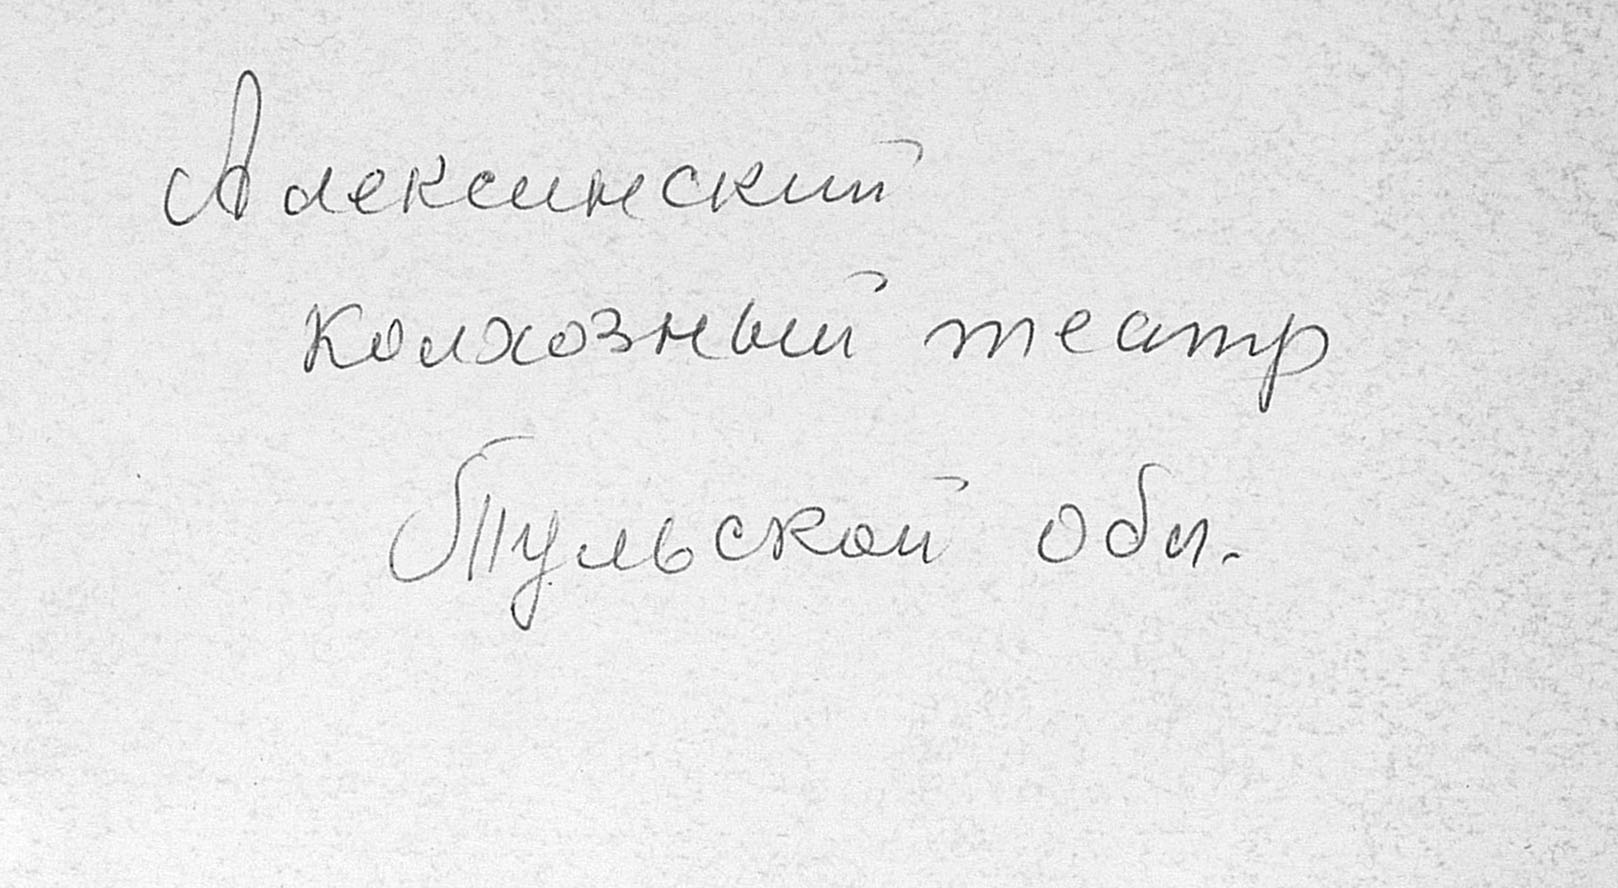 Алексинский
колхозный театр
Тульской обл.